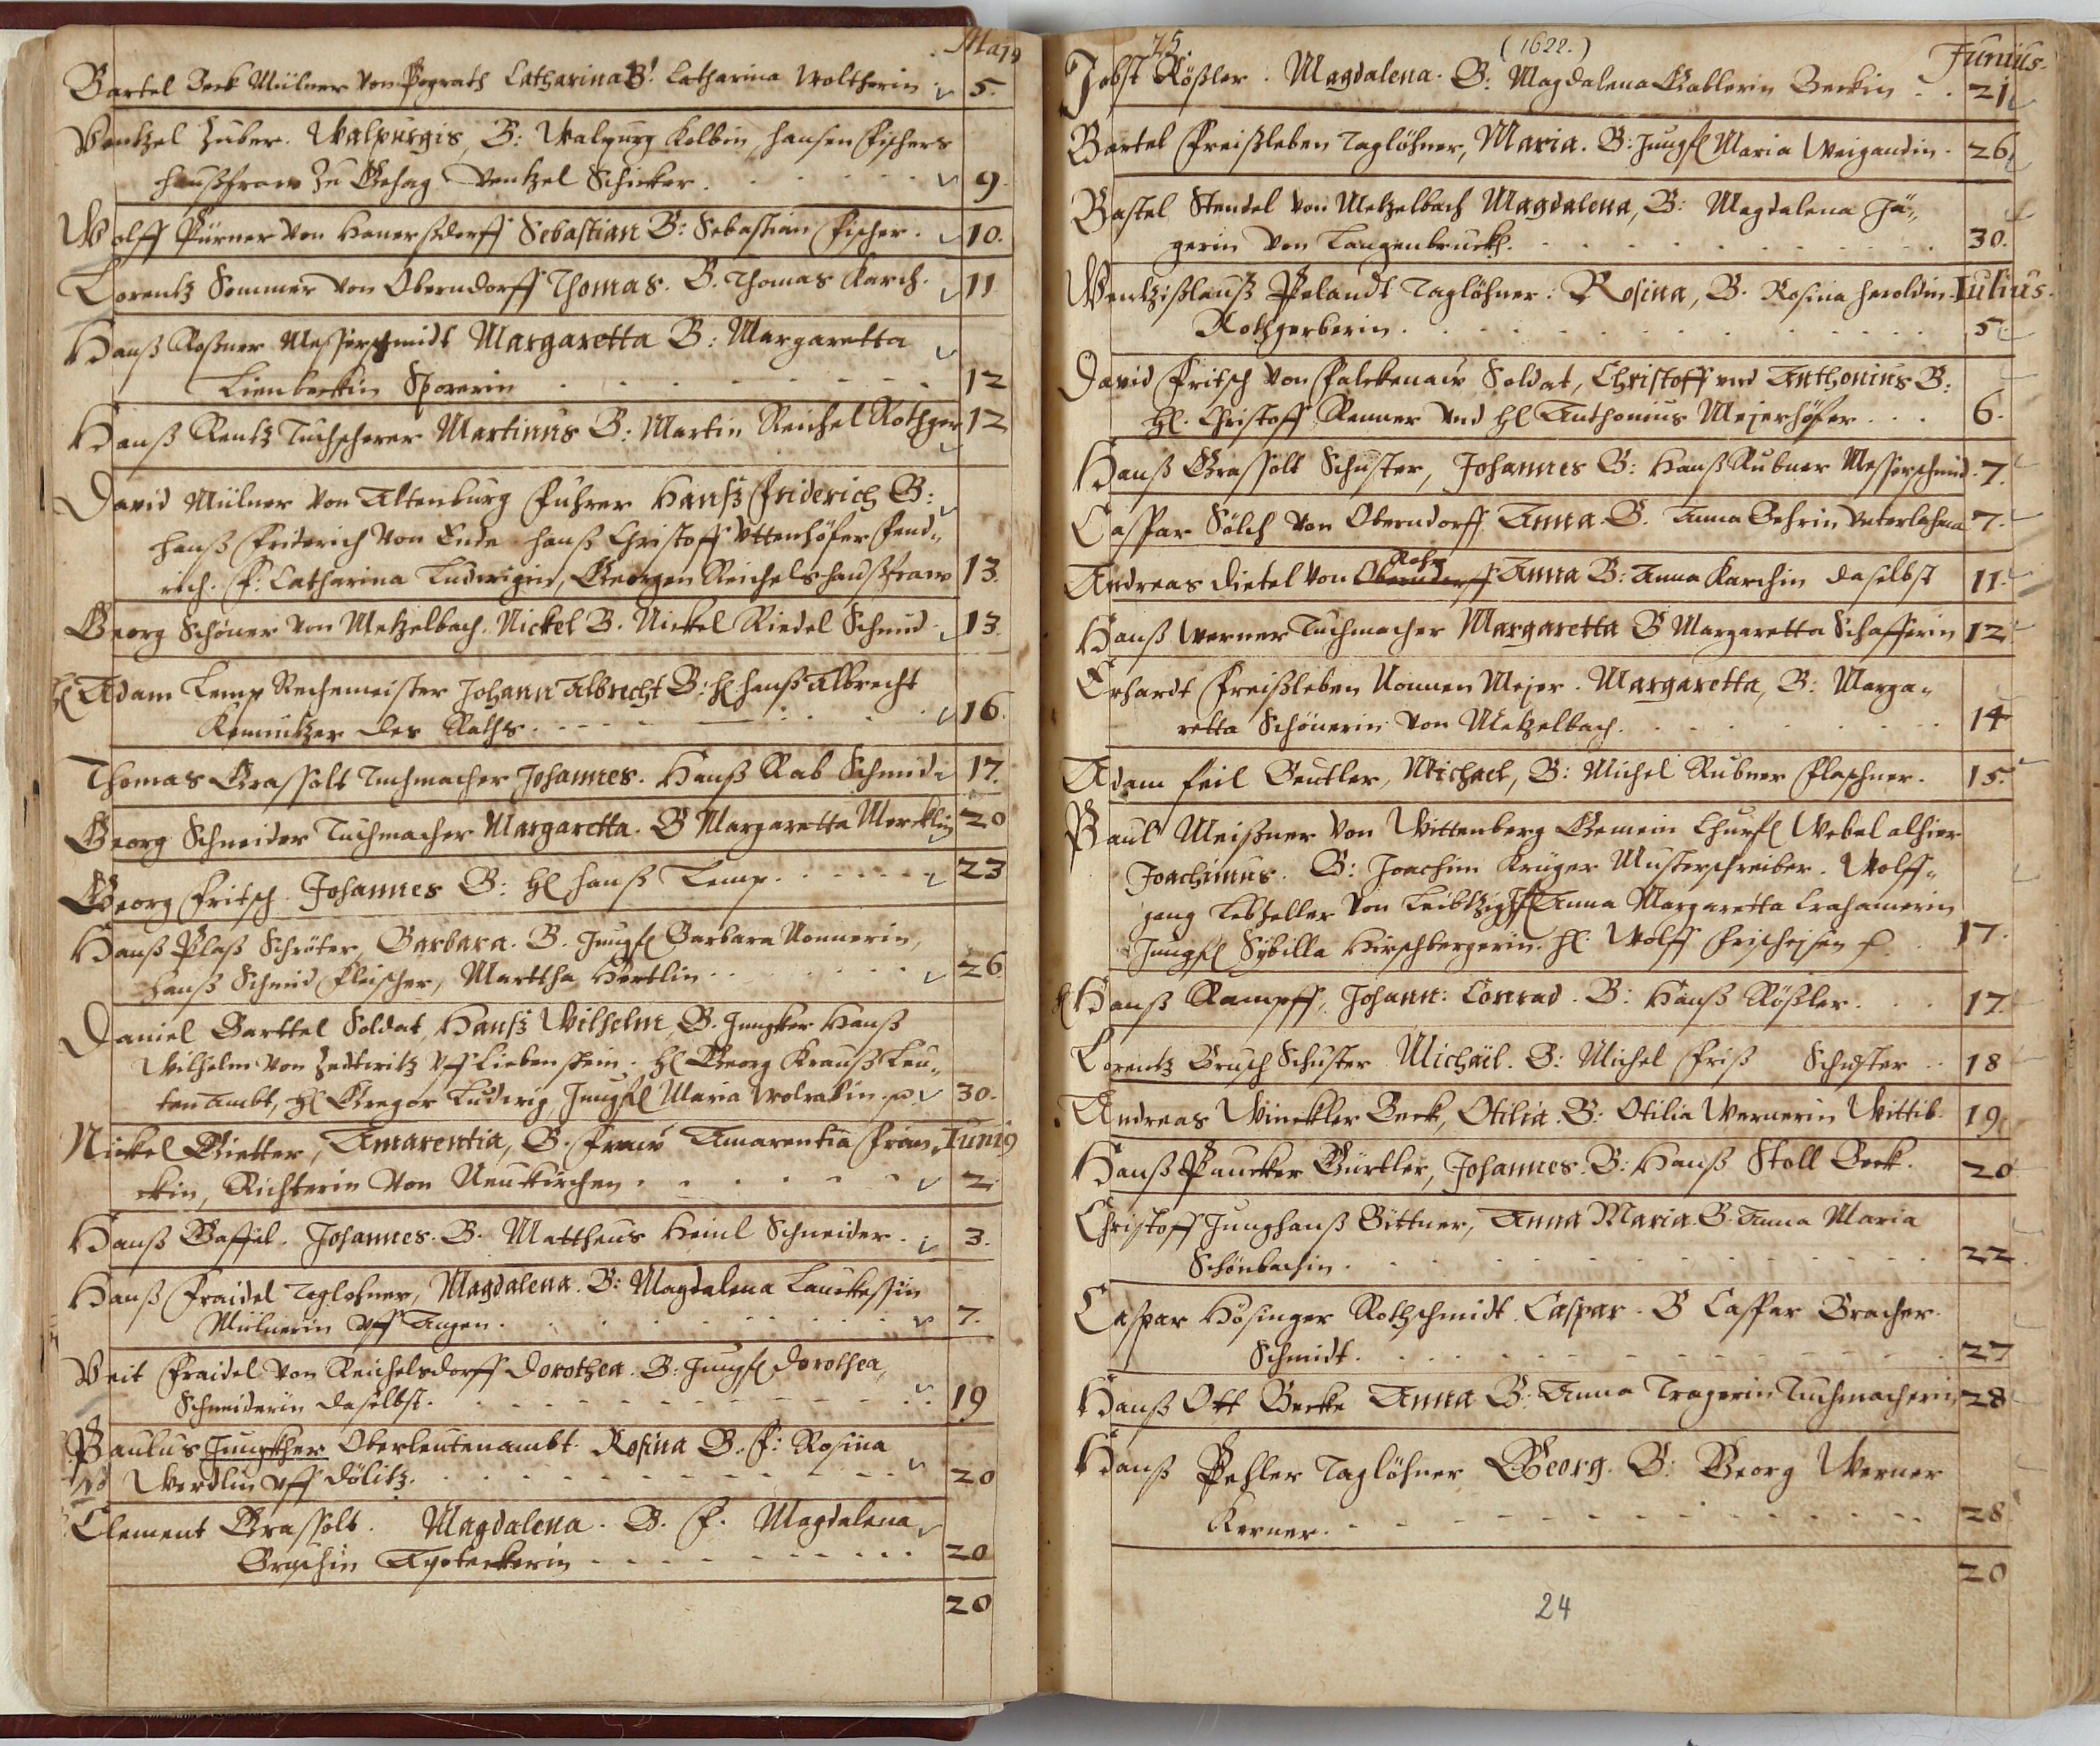 Majo
Bartel Beck Müllner von Pograth Catharina B: Catharina Woltherin 5.
Wentzel Huber. Walpurgis, B: Walpurg Kolbin, Hansen Fischers
haußfraw zu Gehag Wentzel Schicker. 9.
Wolff Pürner von Hanerßdorff Sebastian B: Sebastian Fischer. 10.
Lorentz Sommer von Oberndorff Thomas. B. Thomas Karch. 11
Hanß Roßner Messerschmidt Margaretta B: Margaretta
Lienbeckin Sporerin 12
Hanß Rentz Tuchscherer Martinus B: Martin Reichel Rothger 12
David Mülner von Altenburg Führer Hanß Friderich B:
Hanß Friderich von Ende Hanß Christoff Uttenhöfer Fend„
rich. F: Catharina Ludwigin, Georgen Reichels haußfraw 13.
Georg Schöner von Metzelbach. Nickel B. Nickel Riedel Schmid. 13.
H Adam Lemp Rechemeister Johann Albrecht B: H Hanß Albrecht
Kemnitzer des Raths. 16.
Thomas Grassolt Tuchmacher Johannes. Hanß Rab Schmid 17.
Georg Schneider Tuchmacher Margaretta. B Margaretta Mercklin 20
Georg Fritsch. Johannes B: H Hanß Lemp. 23
Hanß Plaß Schröter, Barbara. B. Jungf Barbara Nonnerin,
Hanß Schmid Fleischer, Marttha Hertlin 26
Daniel Barttel Soldat, Hanß Wilhelm, B. Jungker Hanß
Wilhelm von Zedtwitz uff Liebenstein. H Georg Krauß Leu„
tenambt, H Gregor Ludwig, Jungf Maria Wolrabin 30.
Nickel Gietter, Amarentia, B. Fraw Amarentia Fran„ Junio
ckin, Richterin von Neukirchen 2.
Hanß Gassel. Johannes. B. Mattheus Heinl Schneider. 3.
Hanß Fraidel Taglohner, Magdalena. B: Magdalena Lauckessin
Mülnerin uff Angen. 7.
Veit Fraidel von Reichelsdorff Dorothea. B: Jungf Dorothea
Schneiderin daselbst. 19
Paulus Jungkher Oberleutenambt. Rosina B. F: Rosina
Werdlin uff Dölitz. 20
Clement Grassolt. Magdalena. B. F. Magdalena
Braschin Apoteckerin 20
20
75. (1622.) Junius.
Jobst Rößler. Magdalena. B: Magdalena Gablerin Beckin 21
Bartel Freißleben Taglöhner, Maria. B: Jungf Maria Weigandin. 26
Bastel Stendel von Metzelbach Magdalena, B: Magdalena Jä„
gerin von Langenbruckh. 30.
Wentzißlauß Pelandt Taglöhner. Rosina, B. Rosina Heroldin Julius.
Rothgerberin. 5
David Fritsch von Falckenaw Soldat, Christoff und Anthonius B:
H. Christoff Renner und H Anthonius Mejerhöfer 6.
Hanß Grassolt Schuster, Johannes B: Hanß Rubner Messerschmid. 7.
Caspar Sölch von Oberndorff Anna. B. Anna Behrin Unterlohma 7.
Rohr
Andreas Dietel von Oberndorff Anna B: Anna Karchin daselbst 11.
Hanß Werner Tuchmacher Margaretta B Margaretta Schafferin 12
Erhardt Freißleben Nonnen Mejer. Margaretta, B: Marga„
retta Schönerin von Metzelbach. 14
Adam Feil Beutler, Michael, B: Michel Rubner Flaschner. 15.
Paul Meißner von Wittenberg Gemein Churf Webel alhier
Joachimus. B: Joachim Krüger Musterschreiber. Wolff„
gang Lebzelter von Leibtzig, Anna Margaretta
Jungf Sybilla Hirschbergerin. H. Wolff 17.
H Hanß Rampff, Johann: Conrad. B: Hanß Rößler. 17.
Lorentz Brusch Schuster Michäel. B: Michel Friß Schuster 18
Andreas Winckler Beck, Otilia. B: Otilia Wernerin Wittib. 19.
Hanß Paucker Gürtler, Johannes. B: Hanß Stoll Beck. 20
Christoff Junghanß Büttner, Anna Maria. B. Anna Maria
Schönbachin. 22.
Caspar Hösinger Rothschmidt. Caspar. B Caspar Bracher
Schmidt. 27
Hanß Ott Becke Anna B: Anna Tragerin Tuchmacherin 28
Hanß Pehler Taglöhner Georg. B: Georg Werner
Kerner. 28
20
24